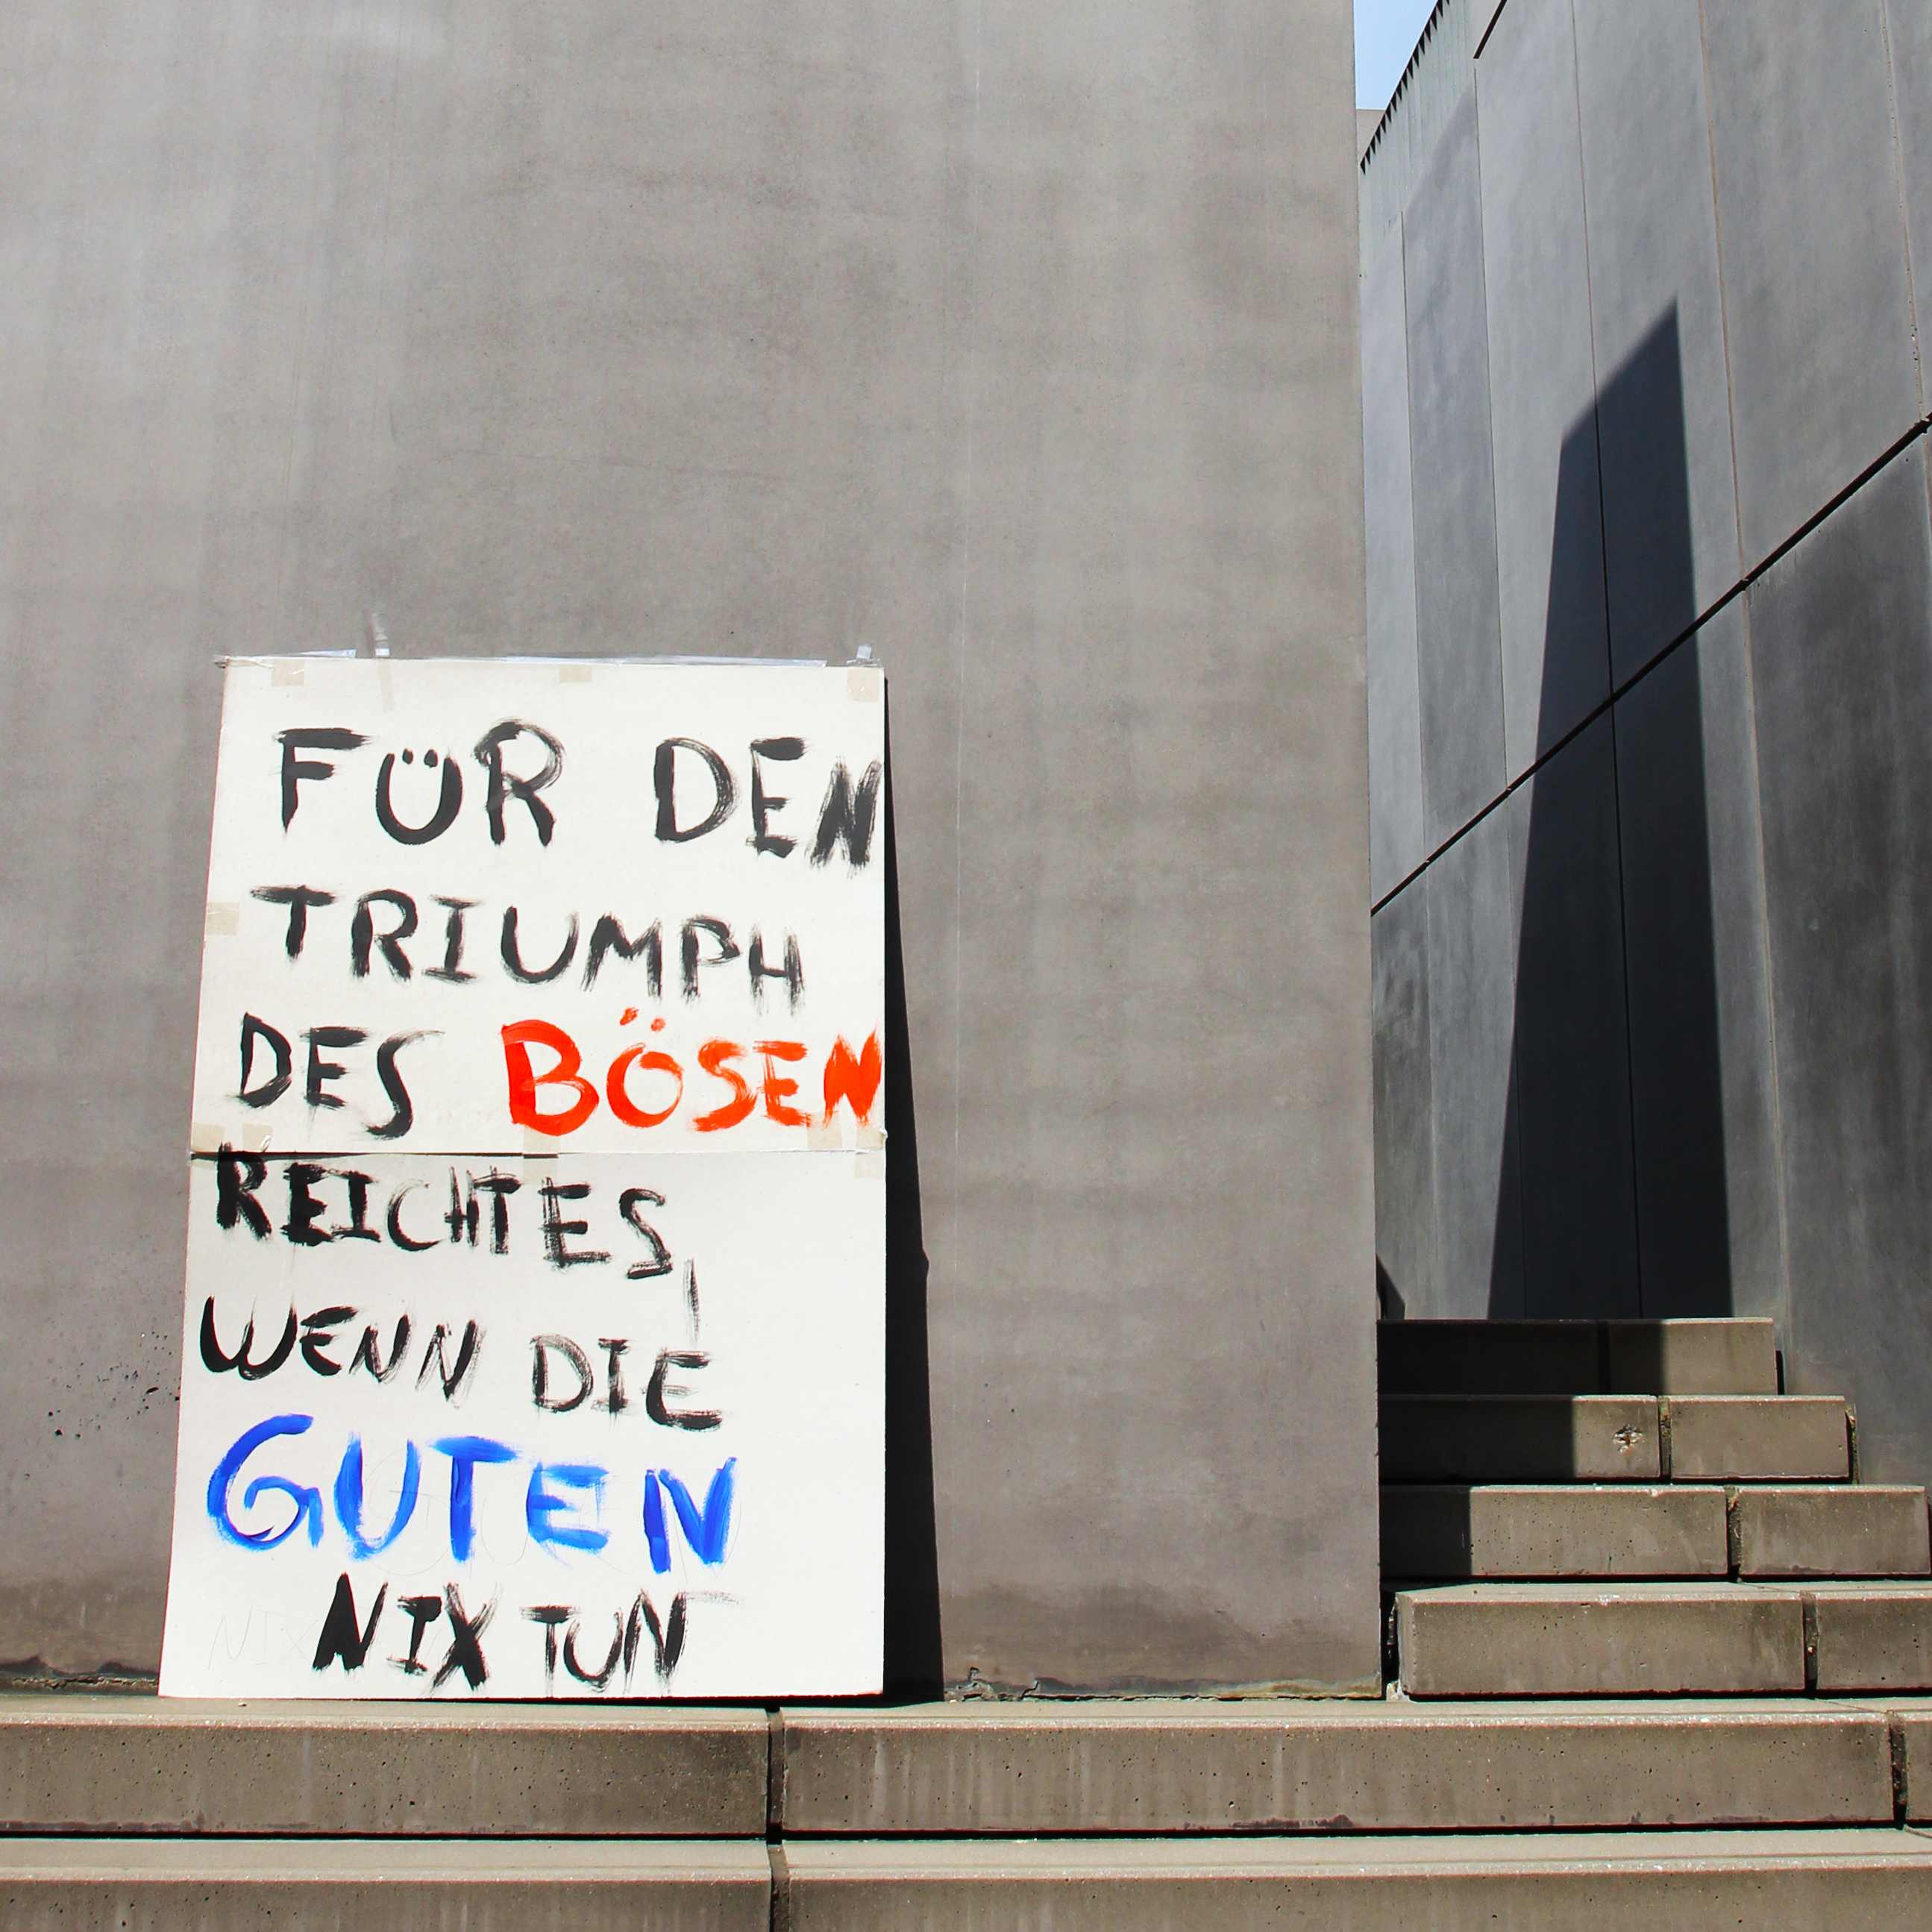 FÜR DEN
TRIUMPH
DES BÖSEN
REICHT ES,
WENN DIE
GUTEN
NIX TUN